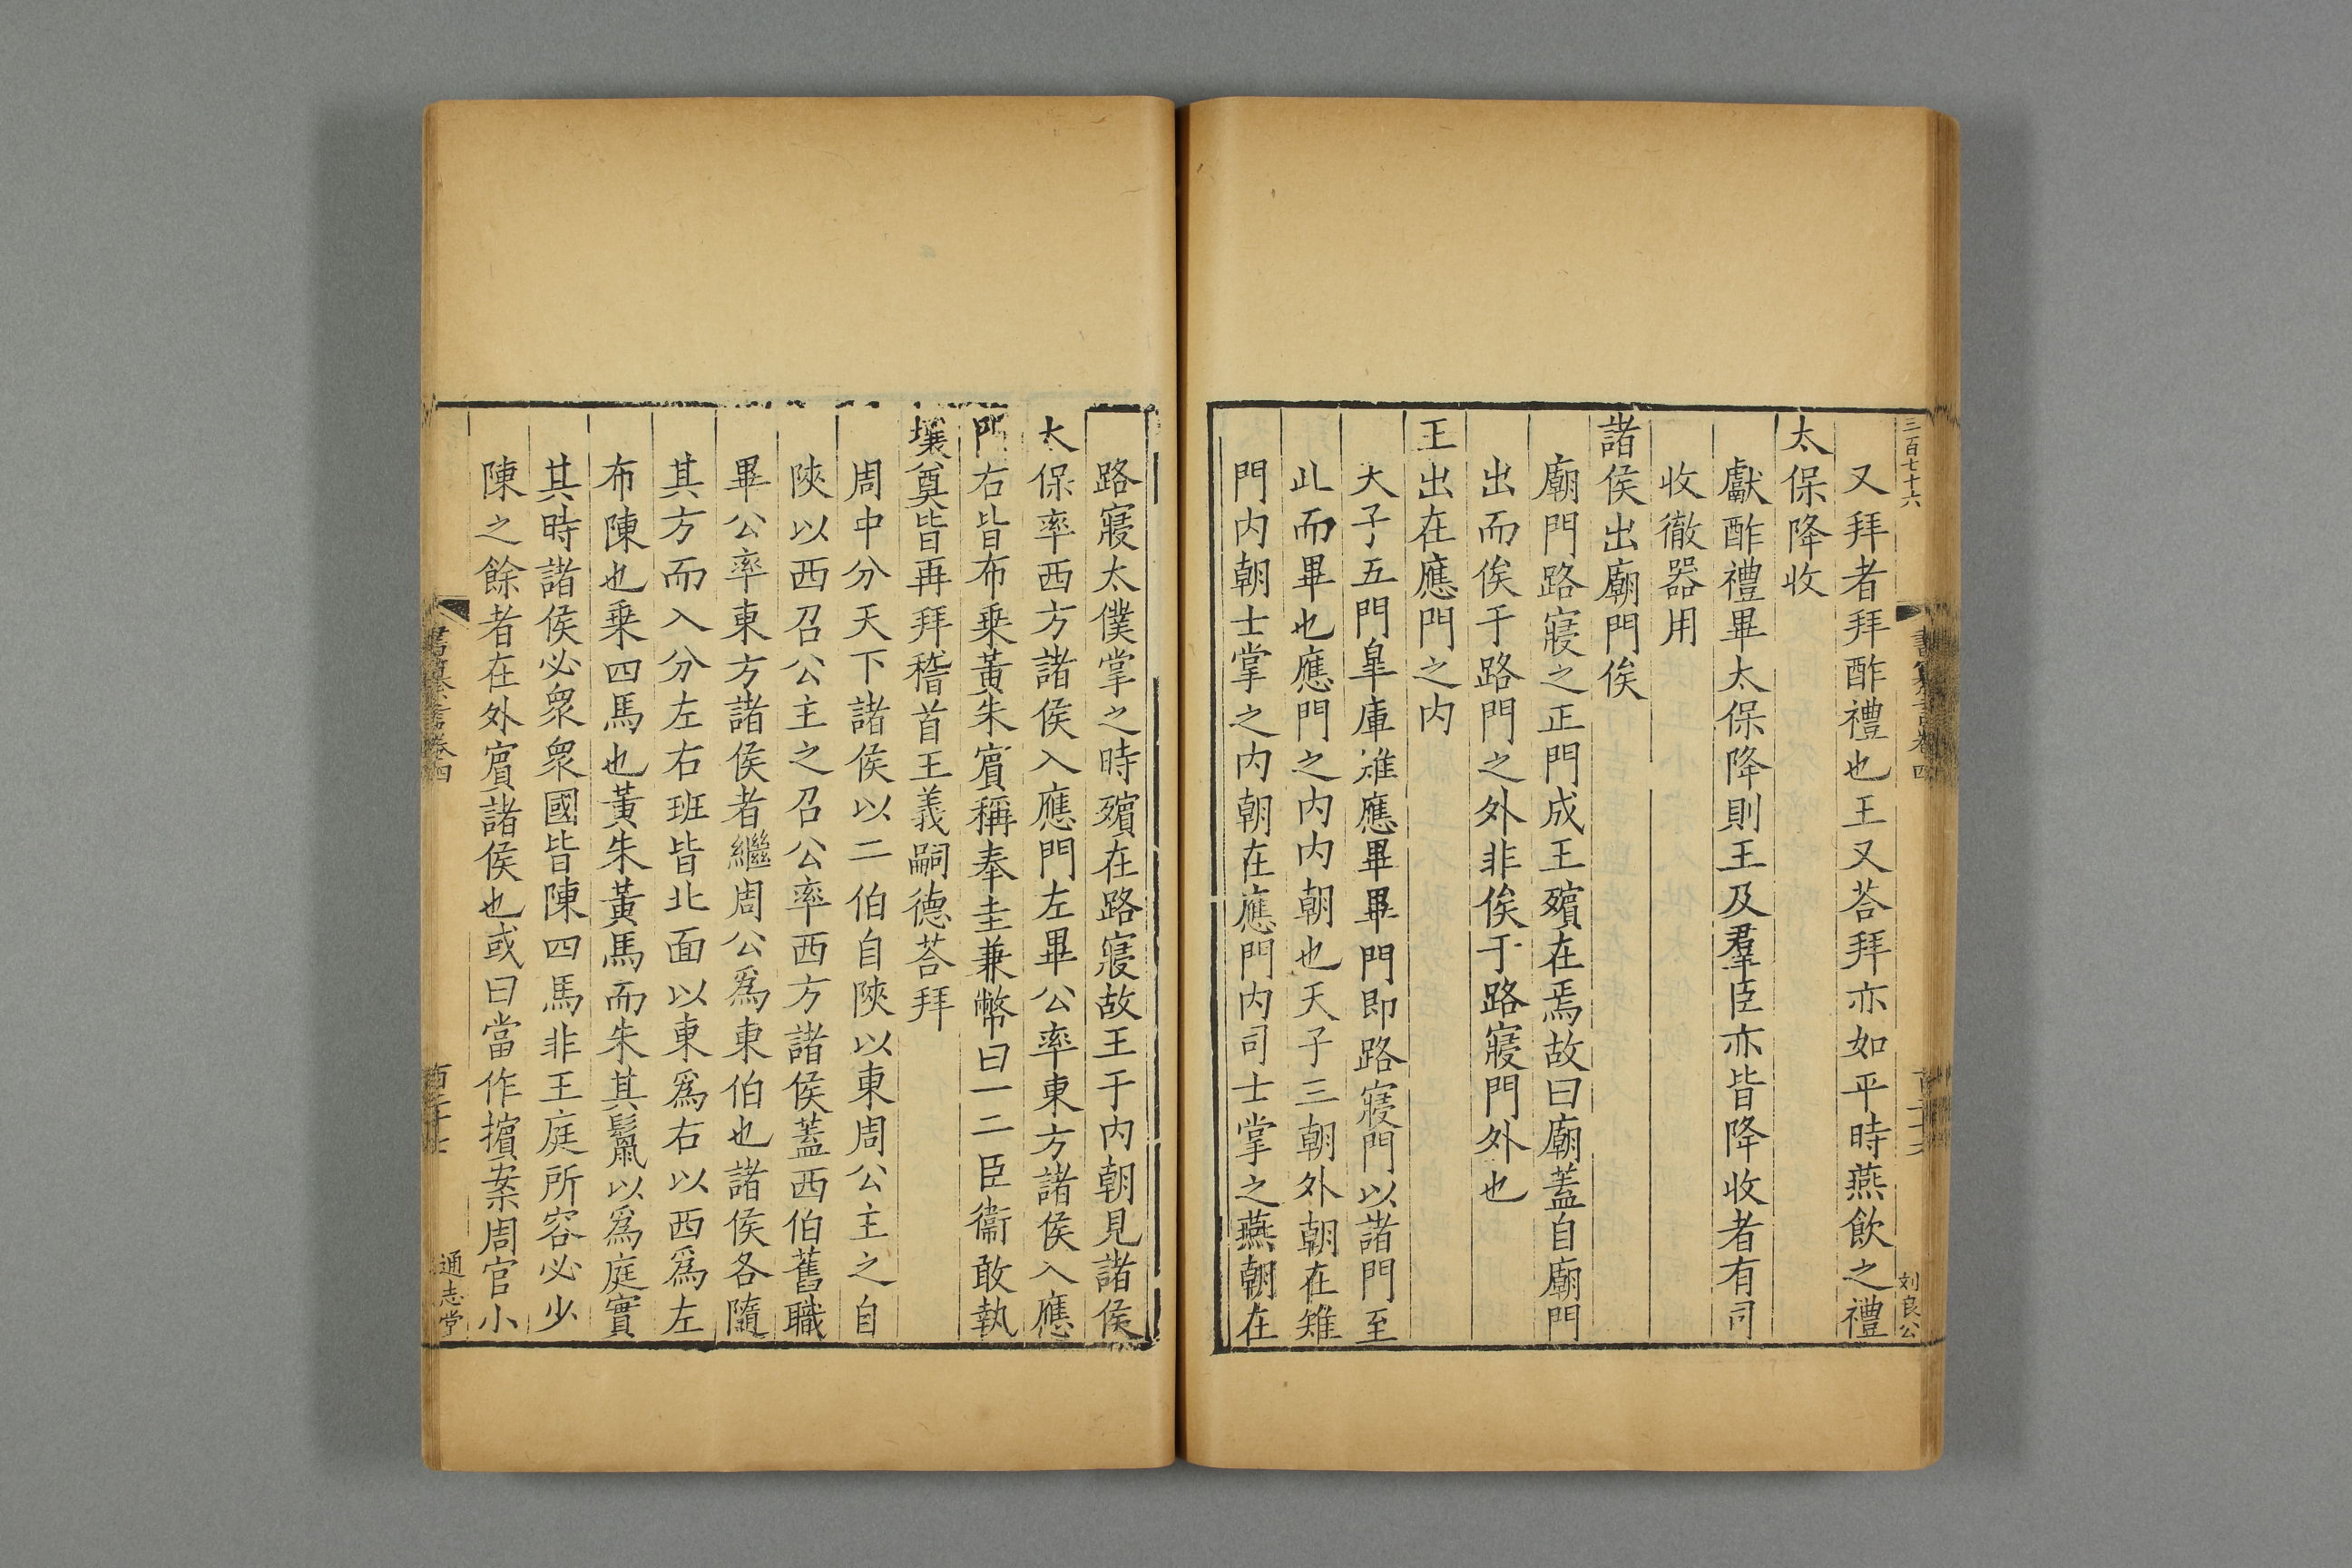 三百七十六
刘良公
又拜者拜酢禮也王又荅拜亦如平時燕飲之禮
太保降收
獻酢禮畢太保降則王及羣臣亦皆降收者有司
收徹器用
諸侯出廟門俟
廟門路寢之正門成王殯在焉故曰廟蓋自廟門
出而俟于路門之外非俟于路寢門外也
王出在應門之内
天子五門皐庫雉應畢畢門即路寢門以諸門至
此而畢也應門之内内朝也天子三朝外朝在雉
門内朝士掌之内朝在應門内司士掌之燕朝在
路寢太僕掌之時殯在路寢故王于内朝見諸侯
太保率西方諸侯入應門左畢公率東方諸侯入應
門右皆布乗黃朱賔稱奉圭兼幣曰一二臣衞敢執
壤奠皆再拜稽首王義嗣德荅拜
周中分天下諸侯以二伯自陜以東周公主之自
陜以西召公主之召公率西方諸侯蓋西伯舊職
畢公率東方諸侯者繼周公爲東伯也諸侯各隨
其方而入分左右班皆北面以東爲右以西爲左
布陳也乗四馬也黃朱黃馬而朱其鬛以爲庭實
其時諸侯必衆衆國皆陳四馬非王庭所容必少
陳之餘者在外賔諸侯也或曰當作擯案周官小
書纂言卷四
通志堂